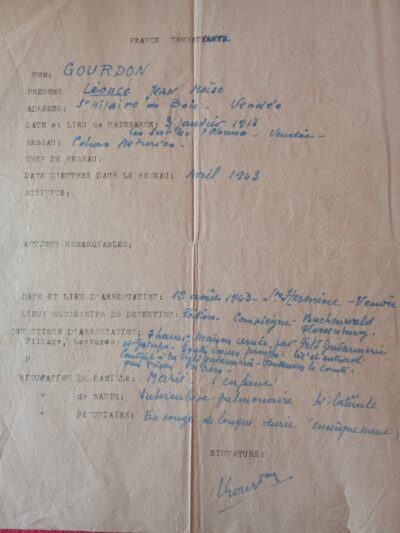 FRANCE COMBATTANTE.
NOM: GOURDON
PRENOMS: Léonce Jean Moïse
ADRESSE: St Hilaire du Bois - Vendée
DATE et LIEU de NAISSANCE: 3 janvier 1913
les Sables d'Olonne - Vendée -
RESEAU: Cohors Asturies -
CHEF DE RESEAU:
DATE D'ENTREE DANS LE RESEAU: Avril 1943
ACTIVITE:
ACTIONS REMARQUABLES:
DATE ET LIEU D'ARRESTATION: 12 août 1943 - Ste Hermine - Vendée
LIEUX SUCCESSIFS DE DETENTION: Compiègne - Buchenwald
Flossenburg
CONDITIONS D'ARRESTATION: 7 heures - maison cernée par Feld Gendarmerie
Pillage, tortures: et Gestapo
P
SITUATION DE FAMILLE: Marié - 1 enfant
" de SANTE: tuberculose pulmonaire bi-latérale
" PECUNIAIRE: En congé de longue durée (enseignement)
SIGNATURE:
LGourdon